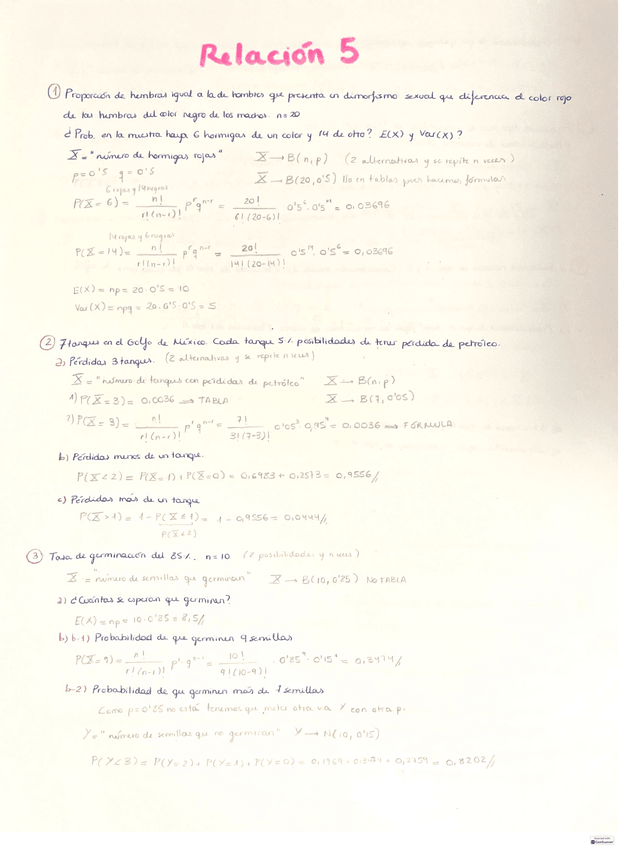 Relación 5
① Proporción de hembras igual a la de hombres que presenta un dimorfismo sexual que diferencia el color rojo
de las hembras del color negro de los machos. n=20
¿Prob. en la muestra haya 6 hormigas de un color y 14 de otro? E(X) y Var(X)?
X = "número de hormigas rojas" X → B(n,p) (2 alternativas y se repite n veces)
p=0'5 q=0'5 X → B(20,0'5) No en tablas pues hacemos fórmulas
6 rojas y 14 negras
P(X=6) = n! / r!(n-r)! p^r q^n-r = 20! / 6!(20-6)! 0'5^6 · 0'5^14 = 0,03696
14 rojas y 6 negras
P(X=14) = n! / r!(n-r)! p^r q^n-r = 20! / 14!(20-14)! 0'5^14 · 0'5^6 = 0,03696
E(X) = np = 20 · 0'5 = 10
Var(X) = npq = 20 · 0'5 · 0'5 = 5
② 7 tanques en el Golfo de México. Cada tanque 5% posibilidades de tener pérdida de petróleo.
a) Pérdidas 3 tanques. (2 alternativas y se repite n veces)
X = "número de tanques con pérdidas de petróleo" X → B(n,p)
1) P(X=3) = 0,0036 ⟹ TABLA X → B(7,0'05)
2) P(X=3) = n! / r!(n-r)! p^r q^n-r = 7! / 3!(7-3)! 0'05^3 0,95^4 = 0,0036 ⟹ FÓRMULA
b) Pérdidas menos de un tanque.
P(X<2) = P(X=1) + P(X=0) = 0,6983 + 0,2573 = 0,9556//
c) Pérdidas más de un tanque
P(X>1) = 1 - P(X≤1) = 1 - 0,9556 = 0,0444//
P(X<2)
③ Tasa de germinación del 85%. n=10 (2 posibilidades y n veces)
X = "número de semillas que germinan" X → B(10,0'85) NO TABLA
a) ¿Cuántas se esperan que germinen?
E(X) = np = 10 · 0'85 = 8,5//
b) b-1) Probabilidad de que germinen 9 semillas
P(X=9) = n! / r!(n-r)! p^r q^n-r = 10! / 9!(10-9)! · 0'85^9 · 0'15^1 = 0,3474//
b-2) Probabilidad de que germinen más de 7 semillas
Como p=0'85 no está tenemos que meter otra va Y con otra p.
Y = "número de semillas que no germinan" Y → N(10,0'15)
P(Y<3) = P(Y=2) + P(Y=1) + P(Y=0) = 0,8202//
CamScanner